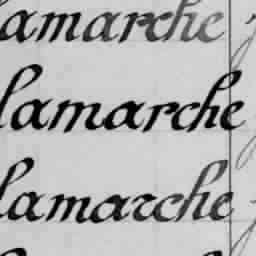 lamarche
lamarche
lamarche